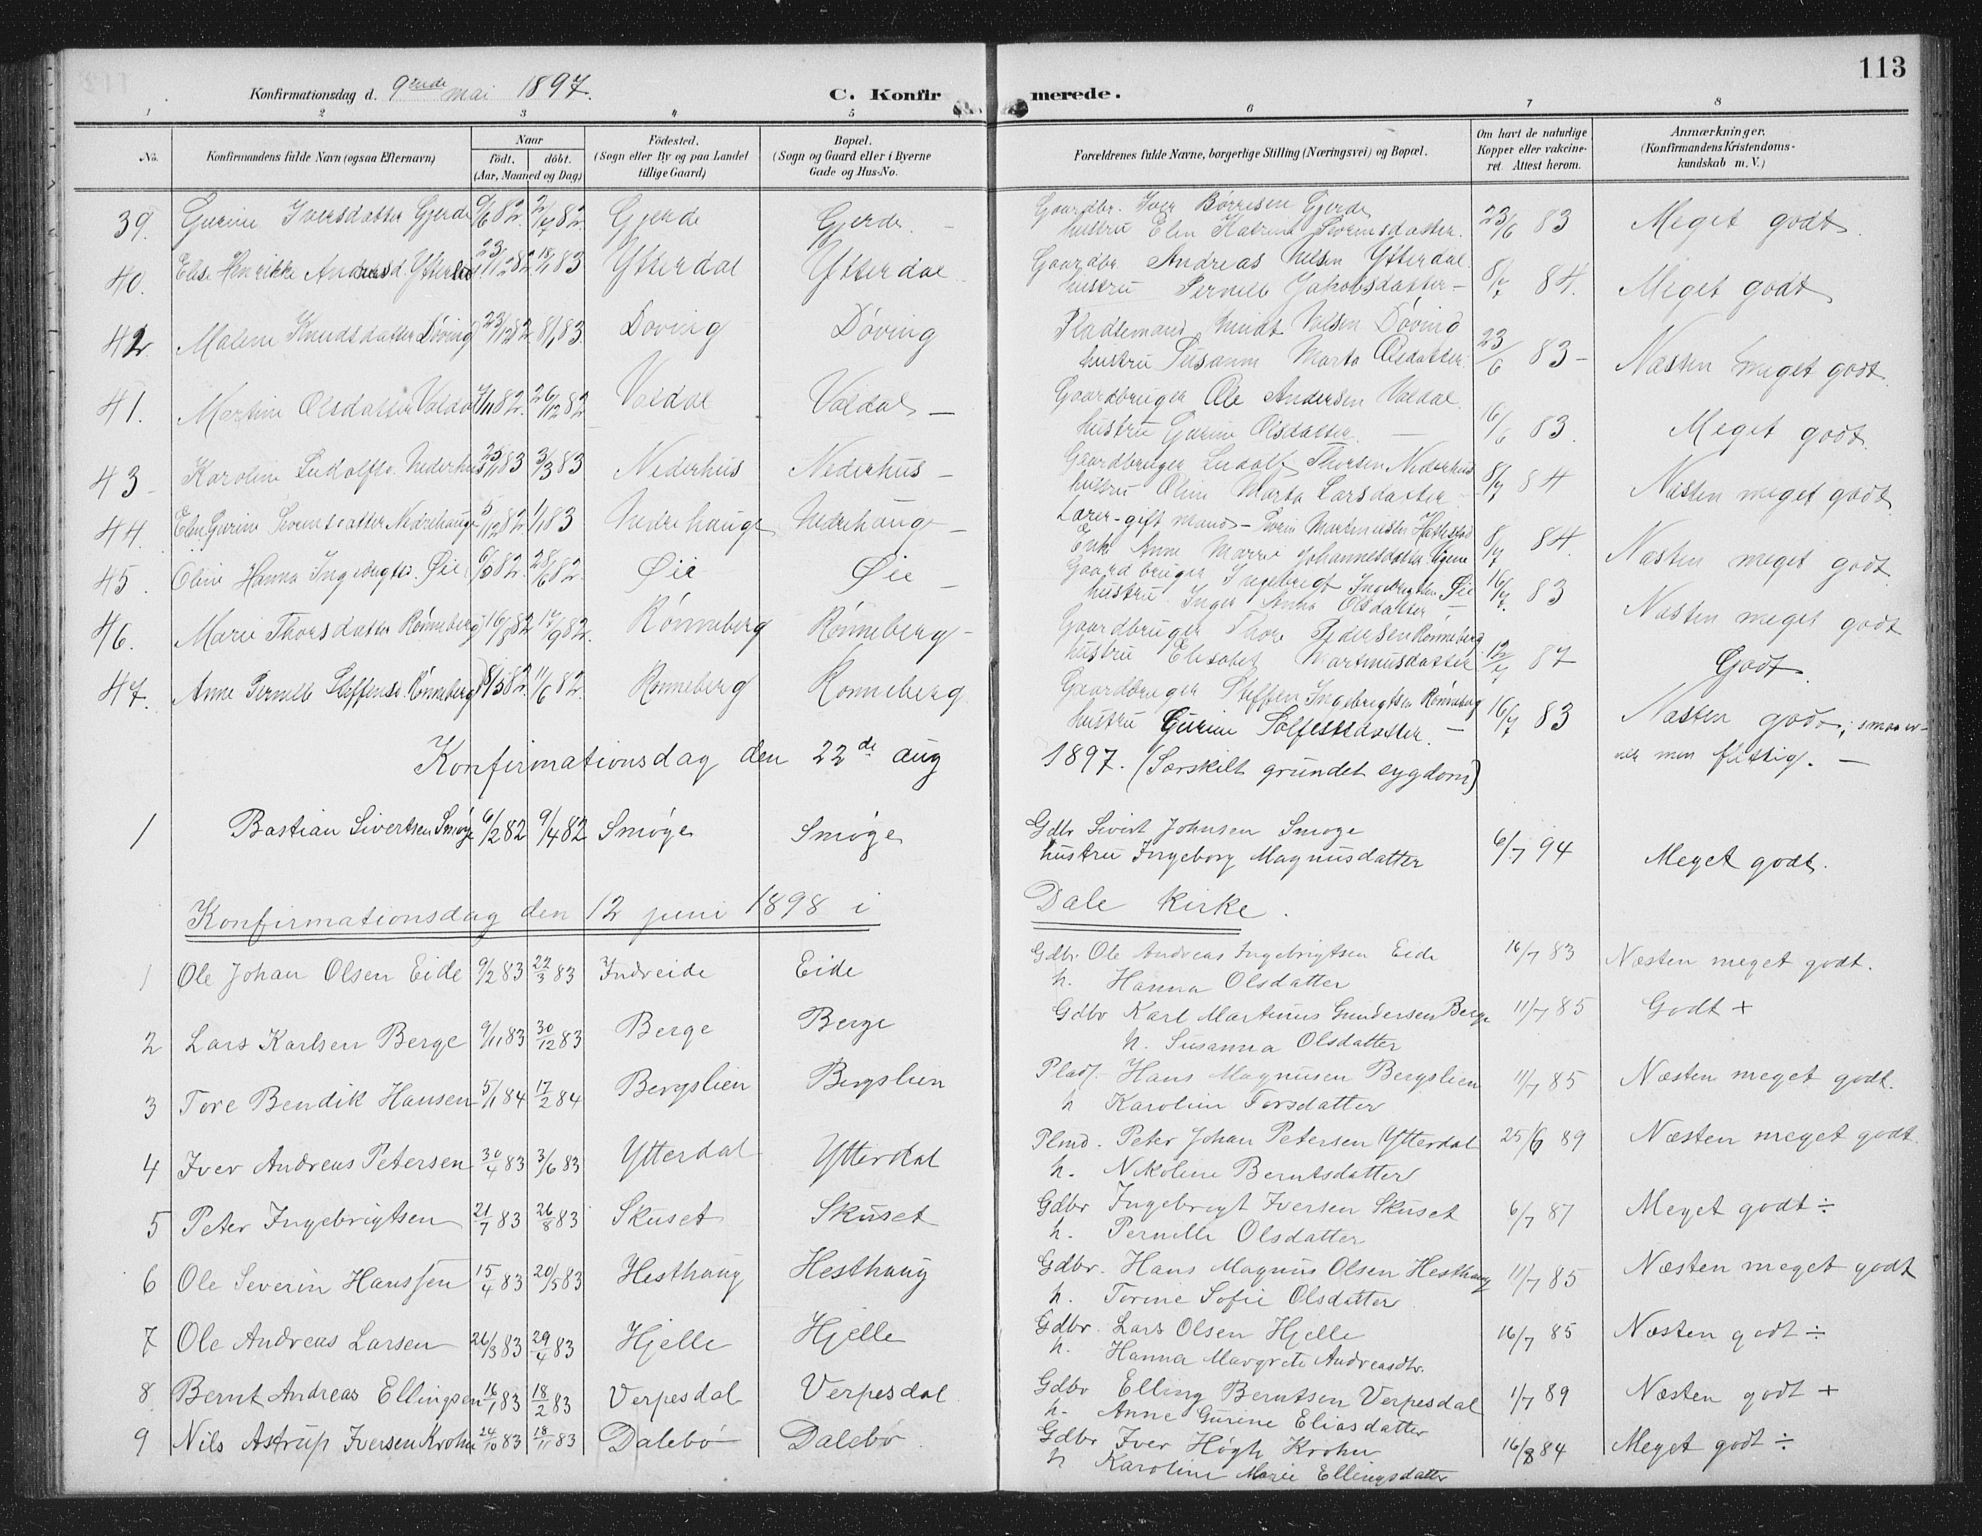 113
Konfirmationsdag d. 9ende mai 1897. C. Konfirmerede.
1 2 3 4 5 6 7 8
No. Konfirmandens fulde Navn (ogsaa Efternavn) Naar födt. döbt. (Aar, Maaned og Dag) Födested. (Sogn eller By og paa Landet tillige Gaard) Bopæl. (Sogn og Gaard eller i Byerne Gade og Hus-No. Forældrenes fulde Navne, borgerlige Stilling (Næringsvei) og Bopæl. Om havt de naturlige Kopper eller vakcineret. Attest herom. Anmærkninger. (Konfirmandens Kristendomskundskab m. V.)
39. Gurine Iversdatter Gjerde 9/6 82. 2/7 82. Gjerde Gjerde — Gaardbr. Iver Børresen Gjerde 23/6 83 Meget godt.
hustru Elen Katrine Sivensdatter.
40. Else Henrikke Andreasd. Ytterdal 23/11 82 18/1 83 Ytterdal Ytterdal Gaardbr Andreas Nilsen Ytterdal 8/7 84. Meget godt
hustru Pernille Jakobsdatter —
42 Malene Knudsdatter Døving 23/12 82 8/1 83 Døving Døving Pladsemand Knudt Nilsen Døving 23/6 83 – Næsten meget godt
hustru Susanne Marta Olsdatter
41. Martine Olsdatter Valdal /11 82. 26/12 82 Valdal Valdal — Gaardbruger Ole Andersen Valdal. 16/6 83. Meget godt
hustru Gurine Olsdatter —
43 – Karoline Ludolfsd. Nederhus 25/1 83 3/3 83 Nederhus Nederhus — Gaardbruger Ludolf Thorsen Nederhus 8/7 84 Næsten meget godt
hustru Oline Marta Larsdatter —
44. Elen Gurine Svensdatter Nedrehauge 5/12 82 1/1 83 Nedrehauge Nedrehauge — Lærer – gift mand – Sven Hattestad 8/7 84. Næsten meget godt
Enke Anne Marie Johannesdatter
45. Oline Hanna Ingebrigtsd. Øie 6/5 82. 28/6 82. Øie Øie — Gaardbruger Ingebrigt Ingebrigtsen Øie 16/7. 83 Næsten meget godt
hustru Inger Anna Olsdatter —
46. Marie Thorsdatter Rønneberg 16/8 82 17/9 82. Rønneberg Rønneberg – Gaardbruger Thore Pedersen Rønneberg 12/7 87 Godt.
hustru Elisabet Martinusdatter
47. Anne Pernille Steffensd. Rønneberg 8/5 82. 11/6 82. Rønneberg Rønneberg Gaardbruger Steffen Ingebrigtsen Rønneberg 16/7 83 Næsten godt;
hustru Gurine Solfestdatter. — men flittig. —
Konfirmationsdag den 22de aug 1897. (Særskilt grundet sygdom)
1 Bastian Sivertsen Smøge 6/2 82 9/4 82 Smøge Smøge Gdbr Sivert Johnsen Smøge 6/7 94 Meget godt.
hustru Ingeborg Magnusdatter
Konfirmationsdag den 12 juni 1898 i Dale kirke.
1 Ole Johan Olsen Eide 9/2 83 22/3 83 Indreide Eide Gdbr. Ole Andreas Ingebrigtsen Eide 16/7 83 Næsten meget godt.
h. Hanna Olsdatter
2 Lars Karlsen Berge 9/11 83 30/12 83 Berge Berge Gdbr Karl Martinus Gundersen Berge 11/7 85 Godt +
h. Susanna Olsdatter
3 Tore Bendik Hansen 5/1 84 17/2 84 Bergslien Bergslien Pladf. Hans Magnusen Bergslien 11/7 85 Næsten meget godt.
h Karoline Torsdatter
4 Iver Andreas Petersen 30/4 83 3/6 83 Ytterdal Ytterdal Plmd. Peter Johan Petersen Ytterdal 25/6 89 Næsten meget godt.
h. Nikoline Berntsdatter
5 Peter Ingebrigtsen 21/7 83 26/8 83 Skuset Skuset Gdbr Ingebrigt Iversen Skuset 6/7 87 Meget godt ÷
h. Pernille Olsdatter
6 Ole Severin Hanssen 15/4 83 20/5 83 Hesthaug Hesthaug Gdbr. Hans Magnus Olsen Hesthaug 11/7 85 Næsten meget godt
h. Torine Sofie Olsdatter
7 Ole Andreas Larsen 26/3 83 29/4 83 Hjelle Hjelle Gdbr. Lars Olsen Hjelle 16/7 85 Næsten godt ÷
h. Hanna Margrete Andreasdtr.
8 Bernt Andreas Ellingsen 16/1 83 18/2 83 Verpesdal Verpesdal Gdbr Elling Berntsen Verpesdal 1/7 89 Næsten godt +
h. Anne Gurine Eliasdatter
9 Nils Astrup Iversen Krohn 24/10 83 18/11 83 Dalebø Dalebø Gdbr Iver Høgh Krohn 16/8 84 Meget godt ÷
h Karoline Marie Ellingsdatter